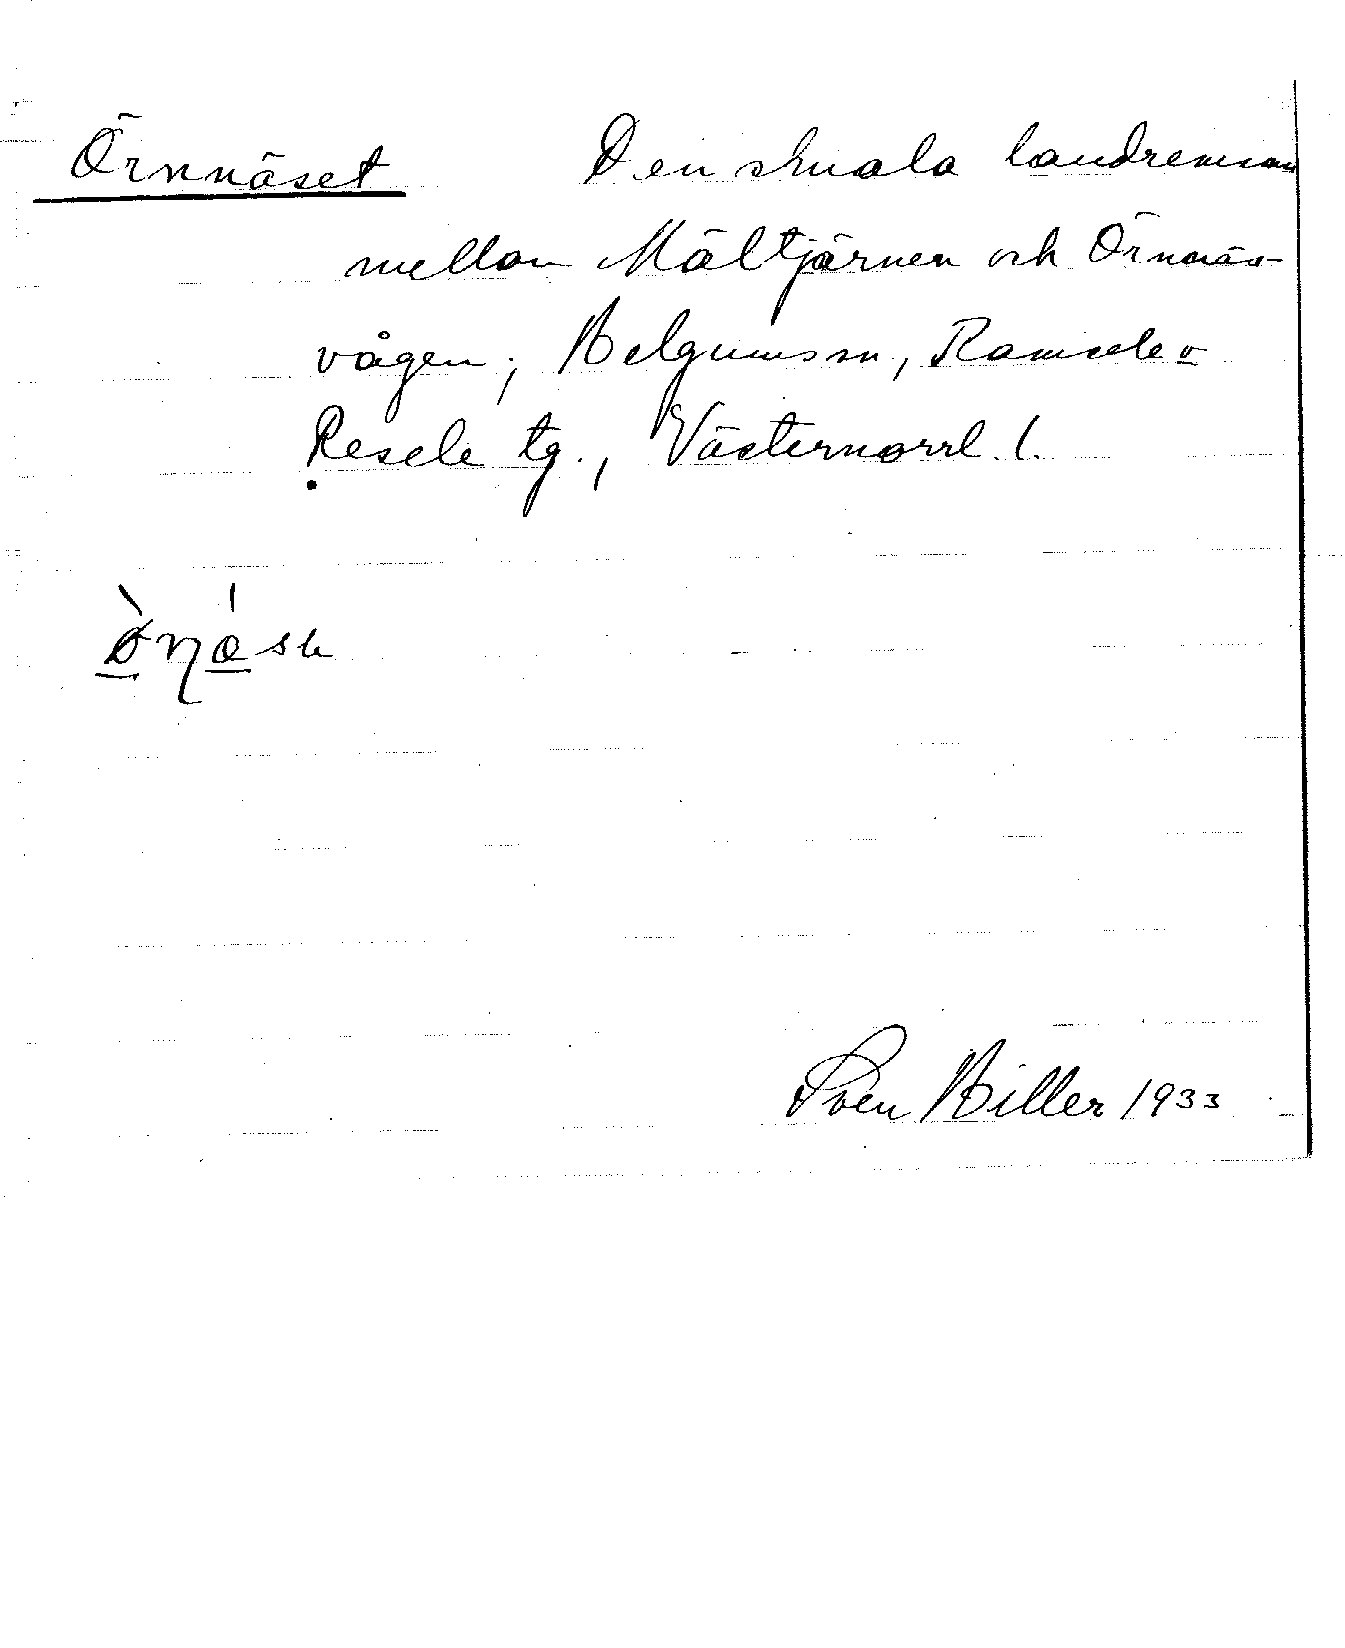 Örnnäset Den smala landremsan
mellan Mältjärnen och Örnnäs-
vågen; Helgums sn, Ramsele o
Resele tg., Västernorrl. l.
Sven Hiller 1933